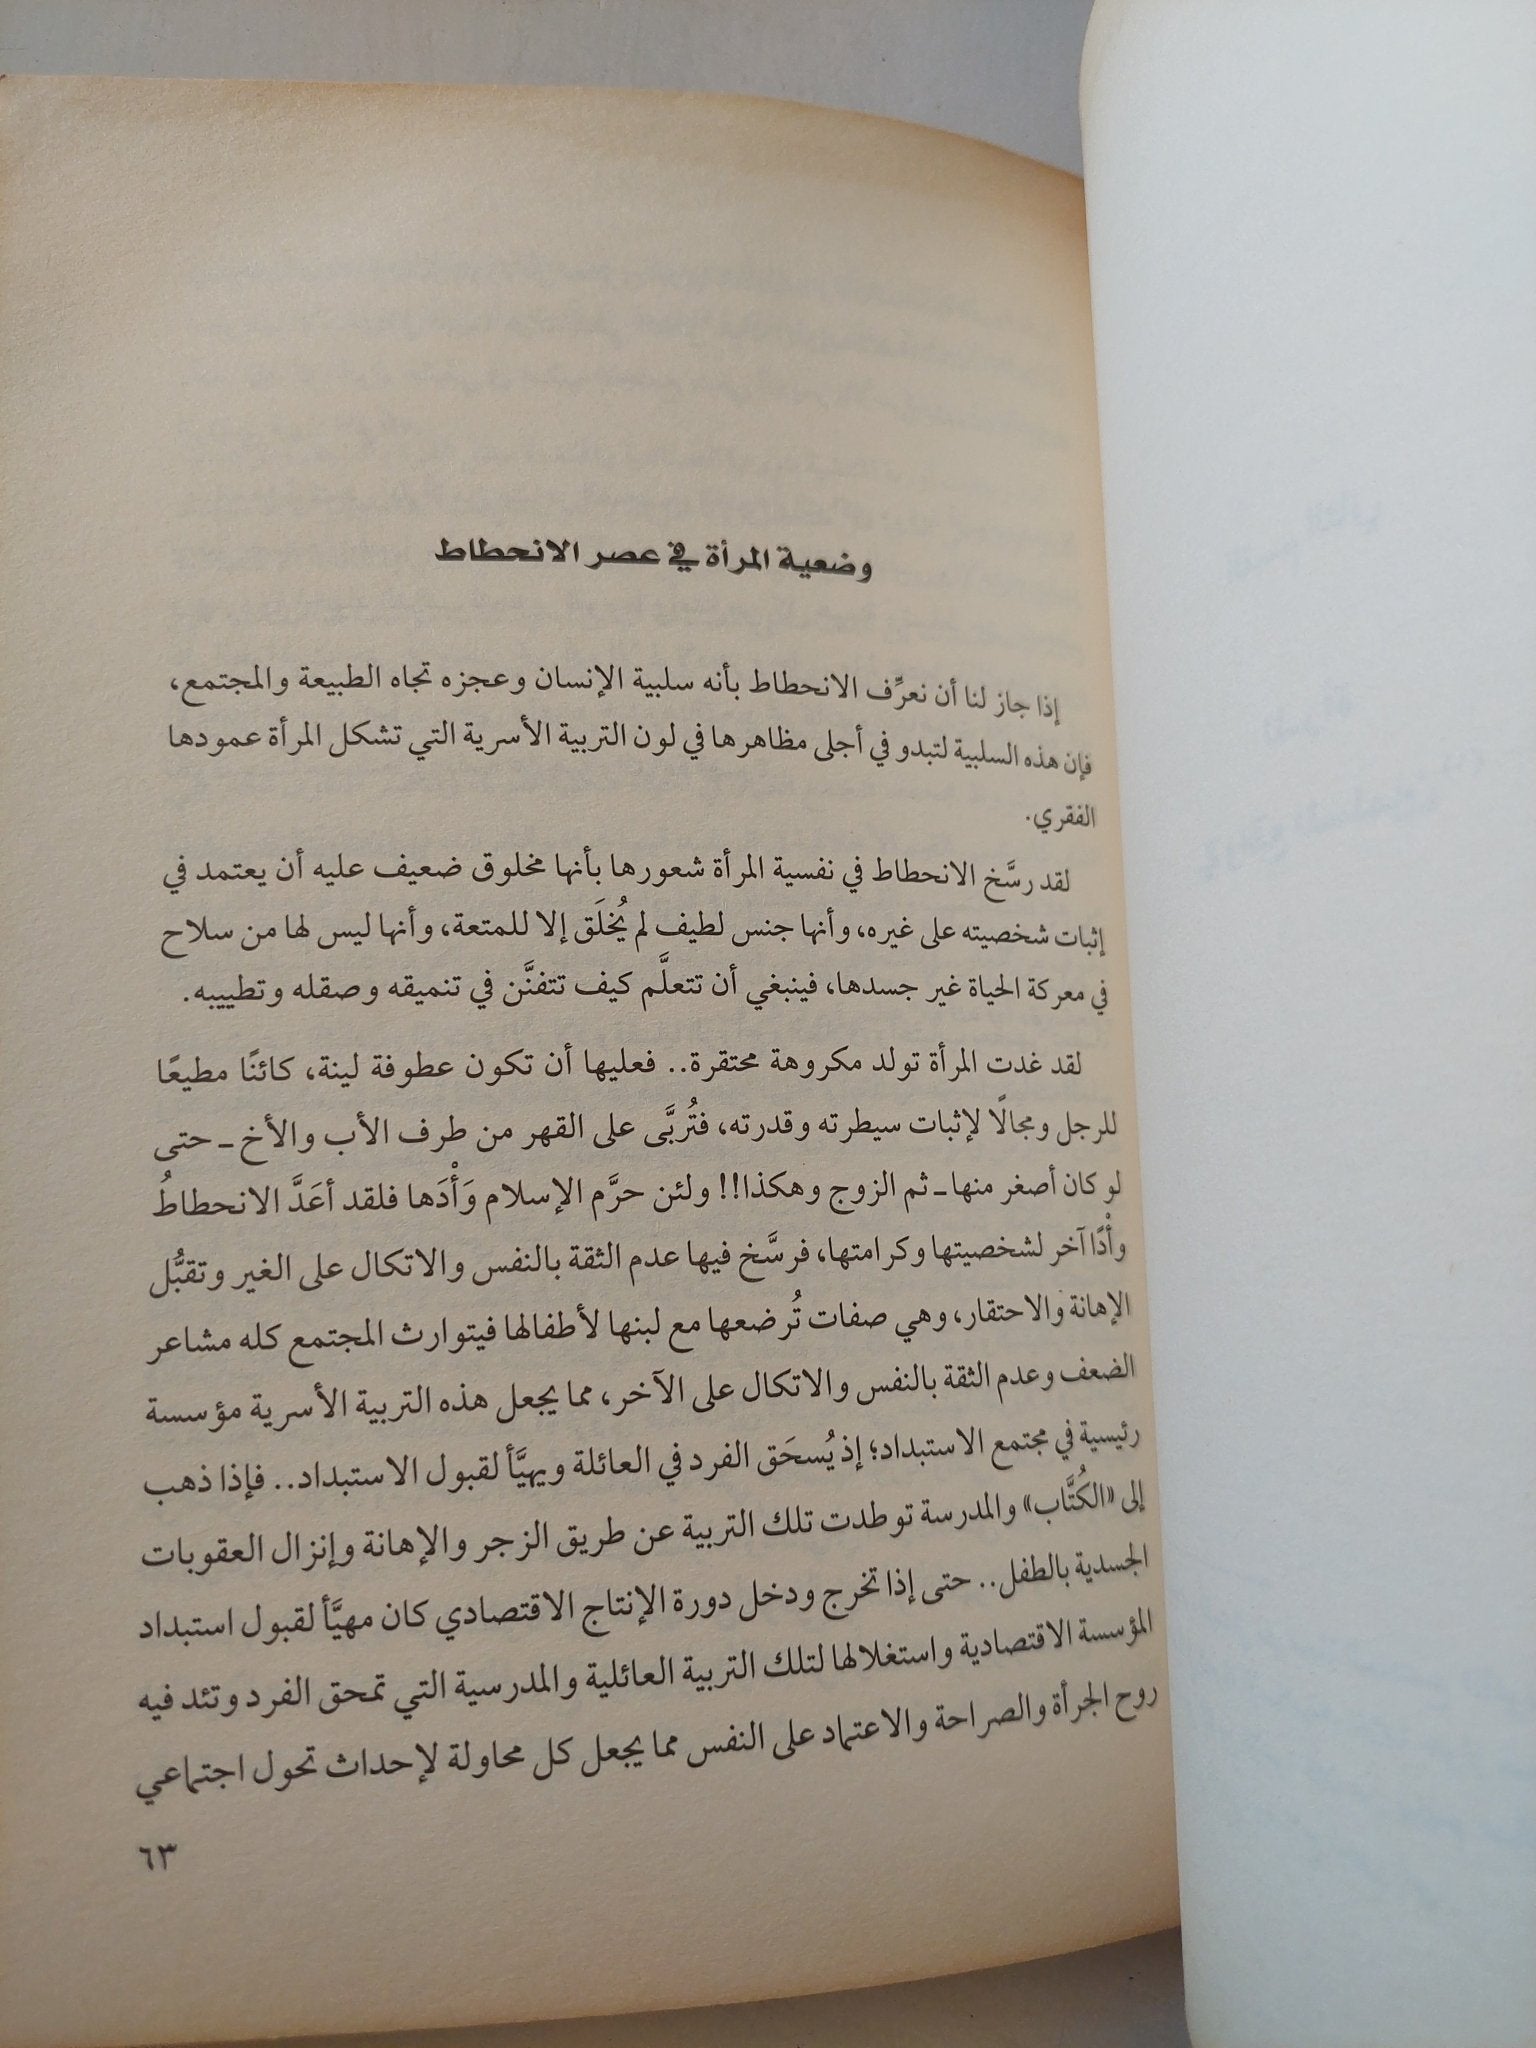 وضعية المرأة في عصر الانحطاط
إذا جاز لنا أن نعرِّف الانحطاط بأنه سلبية الإنسان وعجزه تجاه الطبيعة والمجتمع،
فإن هذه السلبية لتبدو في أجلى مظاهرها في لون التربية الأسرية التي تشكل المرأة عمودها
الفقري.
لقد رسَّخ الانحطاط في نفسية المرأة شعورها بأنها مخلوق ضعيف عليه أن يعتمد في
إثبات شخصيته على غيره، وأنها جنس لطيف لم يُخلَق إلا للمتعة، وأنها ليس لها من سلاح
في معركة الحياة غير جسدها، فينبغي أن تتعلَّم كيف تتفنَّن في تنميقه وصقله وتطييبه.
لقد غدت المرأة تولد مكروهة محتقرة.. فعليها أن تكون عطوفة لينة، كائنًا مطيعًا
للرجل ومجالًا لإثبات سيطرته وقدرته، فتُربَّى على القهر من طرف الأب والأخ ـ حتى
لو كان أصغر منها ـ ثم الزوج وهكذا!! ولئن حرَّم الإسلام وَأْدَها فلقد أعَدَّ الانحطاطُ
وأْدًا آخر لشخصيتها وكرامتها، فرسَّخ فيها عدم الثقة بالنفس والاتكال على الغير وتقبُّل
الإهانة والاحتقار، وهي صفات تُرضعها مع لبنها لأطفالها فيتوارث المجتمع كله مشاعر
الضعف وعدم الثقة بالنفس والاتكال على الآخر، مما يجعل هذه التربية الأسرية مؤسسة
رئيسية في مجتمع الاستبداد؛ إذ يُسحَق الفرد في العائلة ويهيَّأ لقبول الاستبداد.. فإذا ذهب
إلى «الكُتَّاب» والمدرسة توطدت تلك التربية عن طريق الزجر والإهانة وإنزال العقوبات
الجسدية بالطفل.. حتى إذا تخرج ودخل دورة الإنتاج الاقتصادي كان مهيَّأ لقبول استبداد
المؤسسة الاقتصادية واستغلالها لتلك التربية العائلية والمدرسية التي تمحق الفرد وتئد فيه
روح الجرأة والصراحة والاعتماد على النفس مما يجعل كل محاولة لإحداث تحول اجتماعي
٦٣